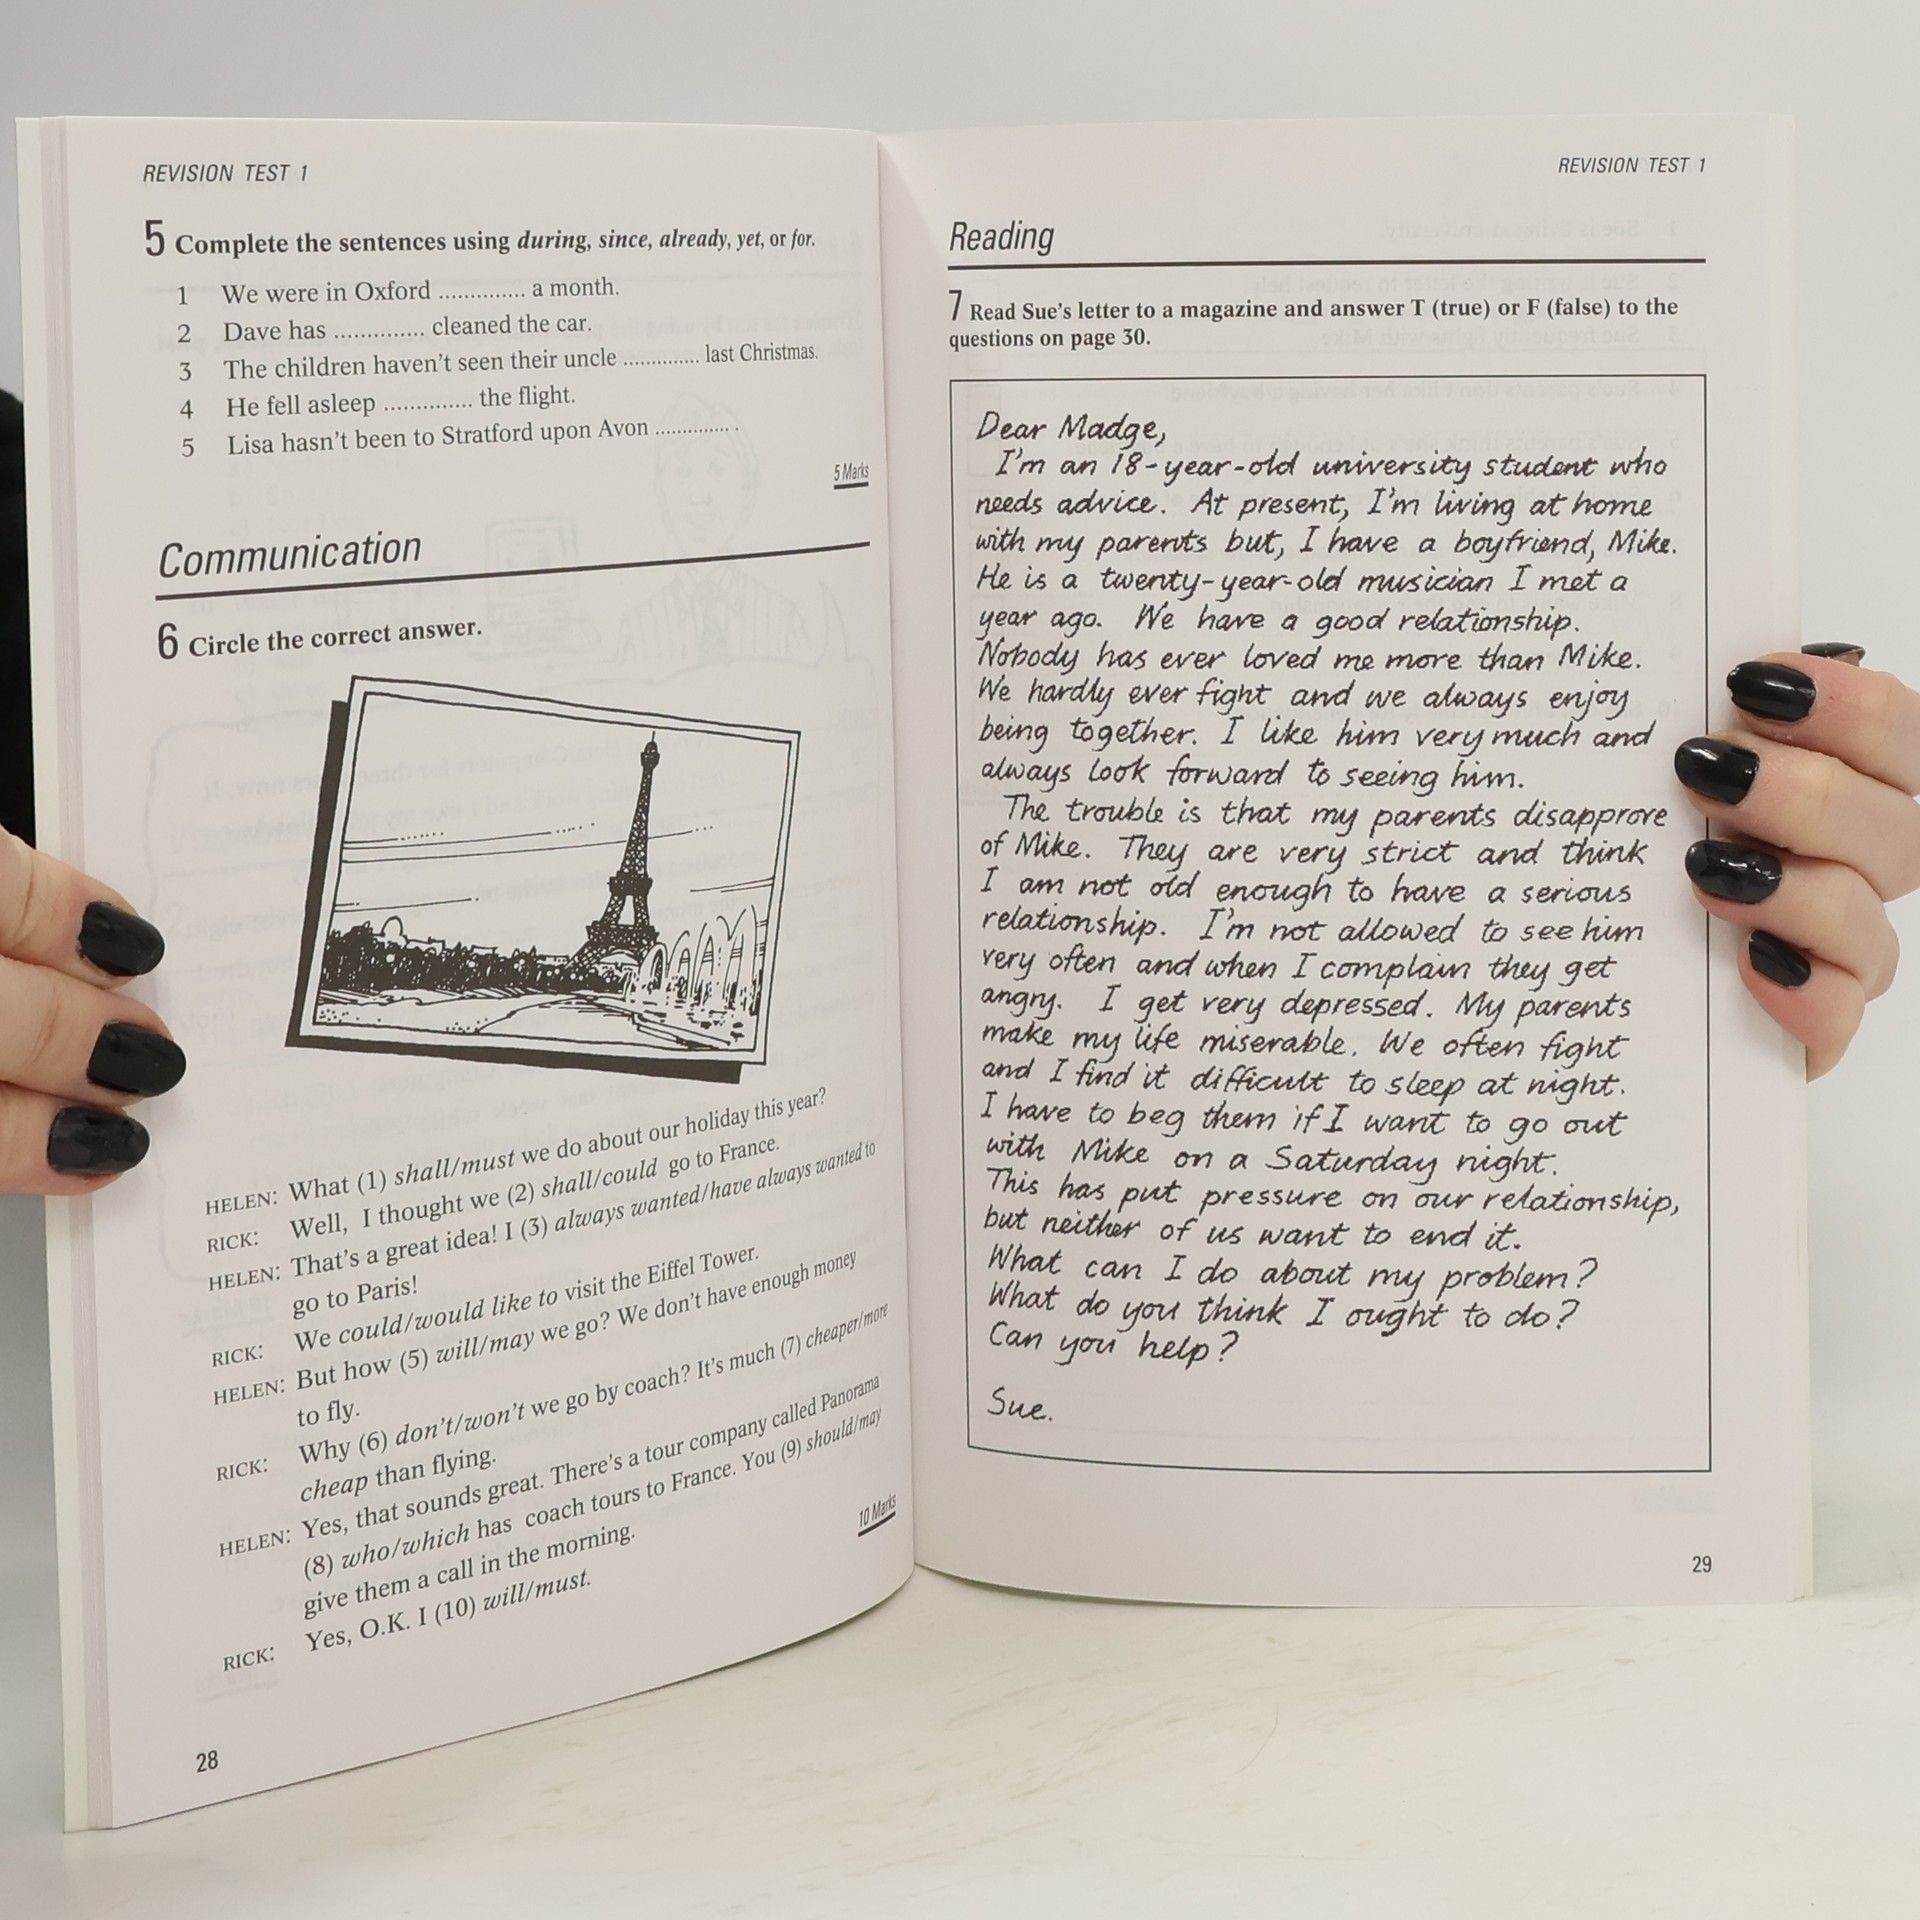 REVISION TEST 1
5 Complete the sentences using during, since, already, yet, or for.
1 We were in Oxford .............. a month.
2 Dave has .............. cleaned the car.
3 The children haven't seen their uncle .............. last Christmas.
4 He fell asleep .............. the flight.
5 Lisa hasn't been to Stratford upon Avon .............. .
5 Marks
Communication
6 Circle the correct answer.
HELEN: What (1) shall/must we do about our holiday this year?
RICK: Well, I thought we (2) shall/could go to France.
HELEN: That's a great idea! I (3) always wanted/have always wanted to
go to Paris!
RICK: We could/would like to visit the Eiffel Tower.
HELEN: But how (5) will/may we go? We don't have enough money
to fly.
RICK: Why (6) don't/won't we go by coach? It's much (7) cheaper/more
cheap than flying.
HELEN: Yes, that sounds great. There's a tour company called Panorama
(8) who/which has coach tours to France. You (9) should/may
give them a call in the morning.
RICK: Yes, O.K. I (10) will/must.
10 Marks
28
REVISION TEST 1
Reading
7 Read Sue's letter to a magazine and answer T (true) or F (false) to the
questions on page 30.
Dear Madge,
I'm an 18-year-old university student who
needs advice. At present, I'm living at home
with my parents but, I have a boyfriend, Mike.
He is a twenty-year-old musician I met a
year ago. We have a good relationship.
Nobody has ever loved me more than Mike.
We hardly ever fight and we always enjoy
being together. I like him very much and
always look forward to seeing him.
The trouble is that my parents disapprove
of Mike. They are very strict and think
I am not old enough to have a serious
relationship. I'm not allowed to see him
very often and when I complain they get
angry. I get very depressed. My parents
make my life miserable. We often fight
and I find it difficult to sleep at night.
I have to beg them if I want to go out
with Mike on a Saturday night.
This has put pressure on our relationship,
but neither of us want to end it.
What can I do about my problem?
What do you think I ought to do?
Can you help?
Sue.
29